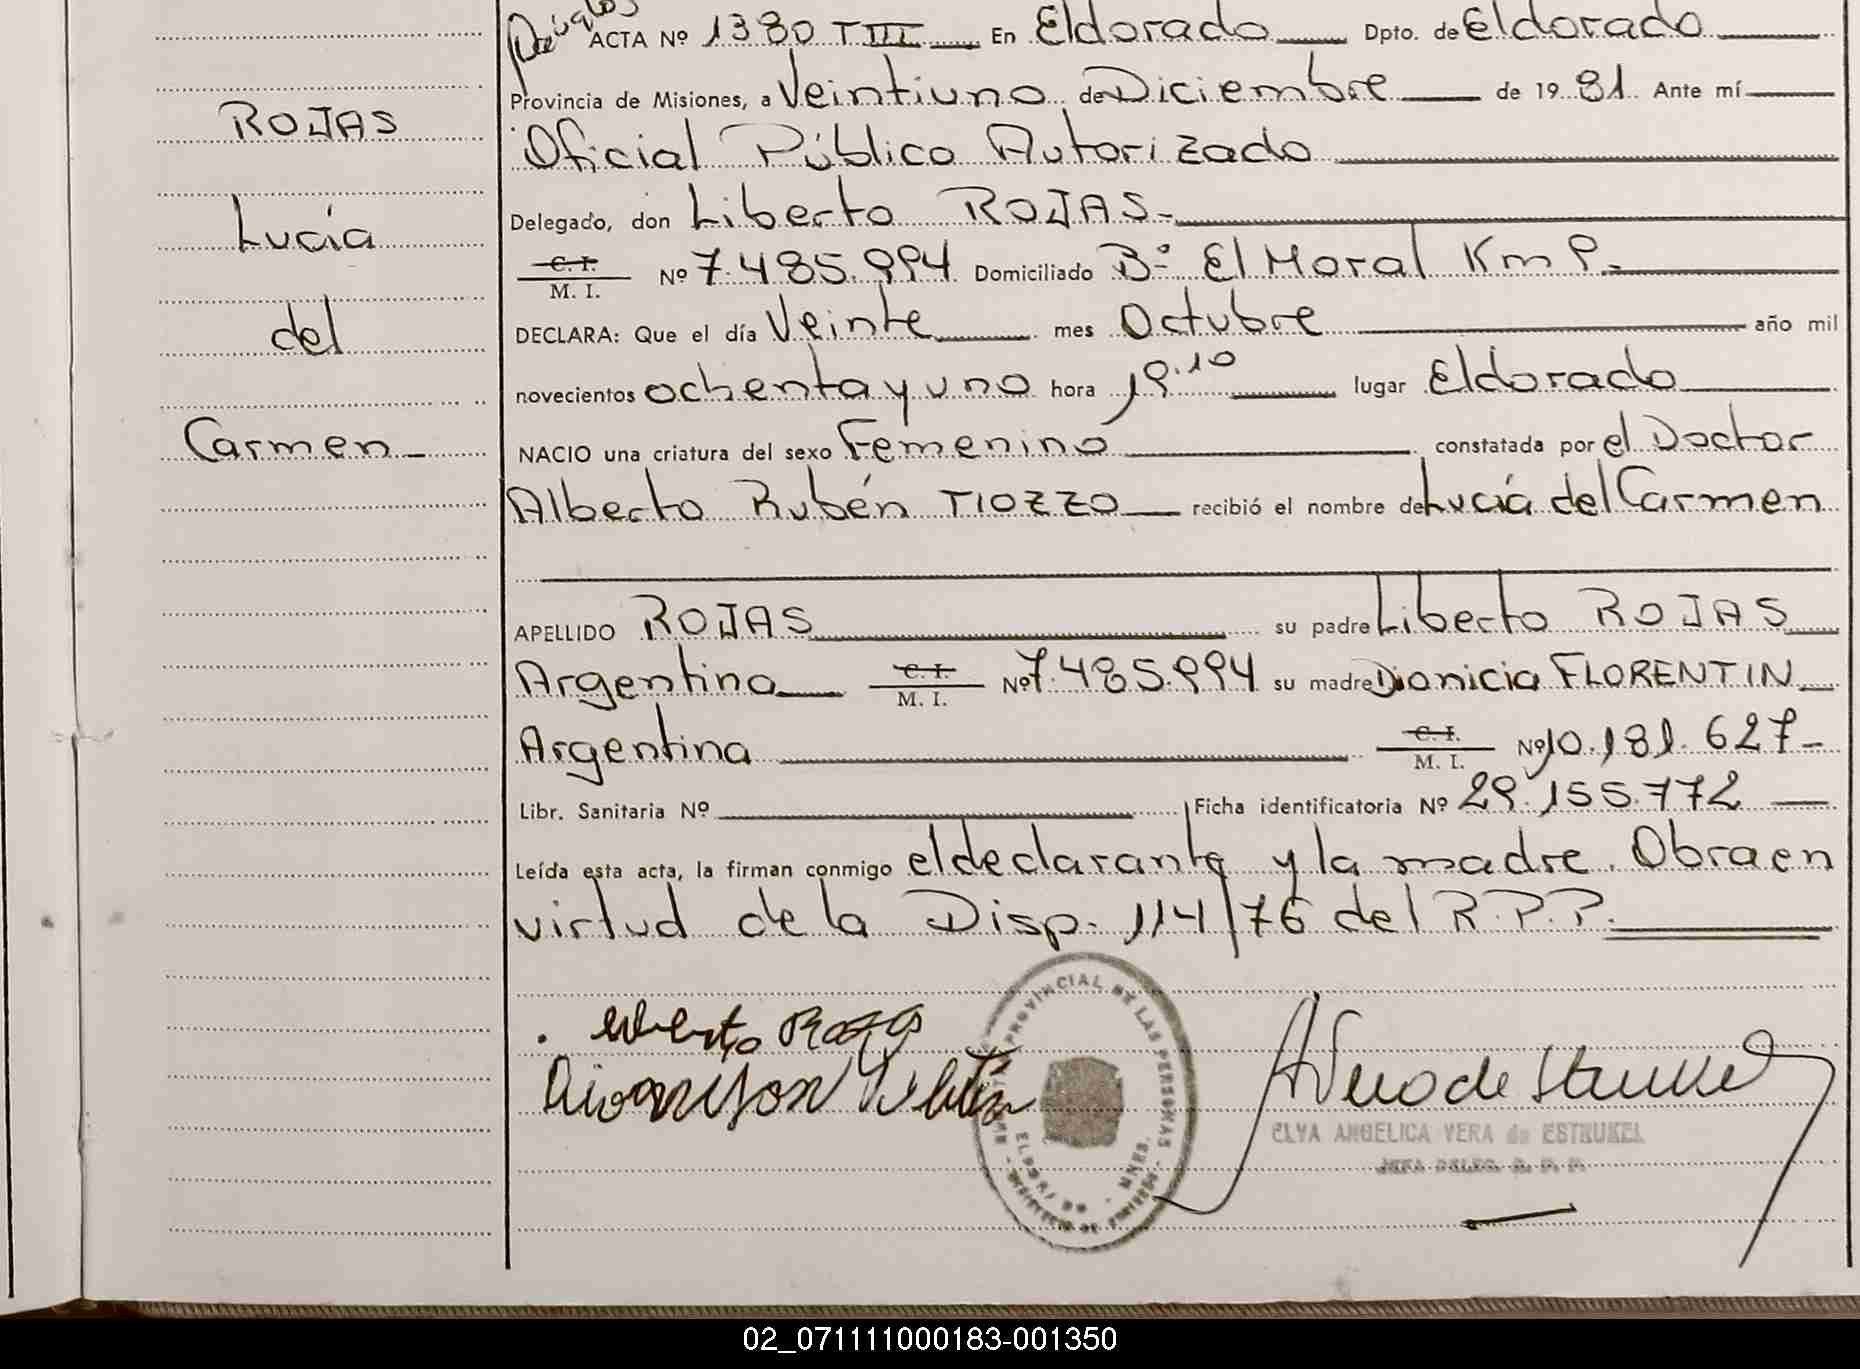 ROJAS
Lucía
del
Carmen
ACTA Nº 1380 T III En Eldorado Dpto. de Eldorado
Provincia de Misiones, a Veintiuno de Diciembre de 19 81 Ante mí
Oficial Público Autorizado
Delegado, don Liberto ROJAS
C. I. / M. I. Nº 7.485.994 Domiciliado Bº El Moral Km 9.
DECLARA: Que el día Veinte mes Octubre año mil
novecientos ochenta y uno hora 19.10 lugar Eldorado
NACIO una criatura del sexo Femenino constatada por el Doctor
Alberto Rubén TIOZZO recibió el nombre de Lucía del Carmen
APELLIDO ROJAS su padre Liberto ROJAS
Argentina C. I. / M. I. Nº 7.485.994 su madre Dionicia FLORENTIN
Argentina C. I. / M. I. Nº 10.181.627
Libr. Sanitaria Nº Ficha identificatoria Nº 29.155.772
Leída esta acta, la firman conmigo el declarante y la madre. Obra en
virtud de la Disp. 114/76 del R.P.P.
PROVINCIAL DE LAS PERSONAS
ELDORADO - MNES.
ELVA ANGELICA VERA de ESTRUKEL
JEFA DELEG. R. P. P.
02_071111000183-001350